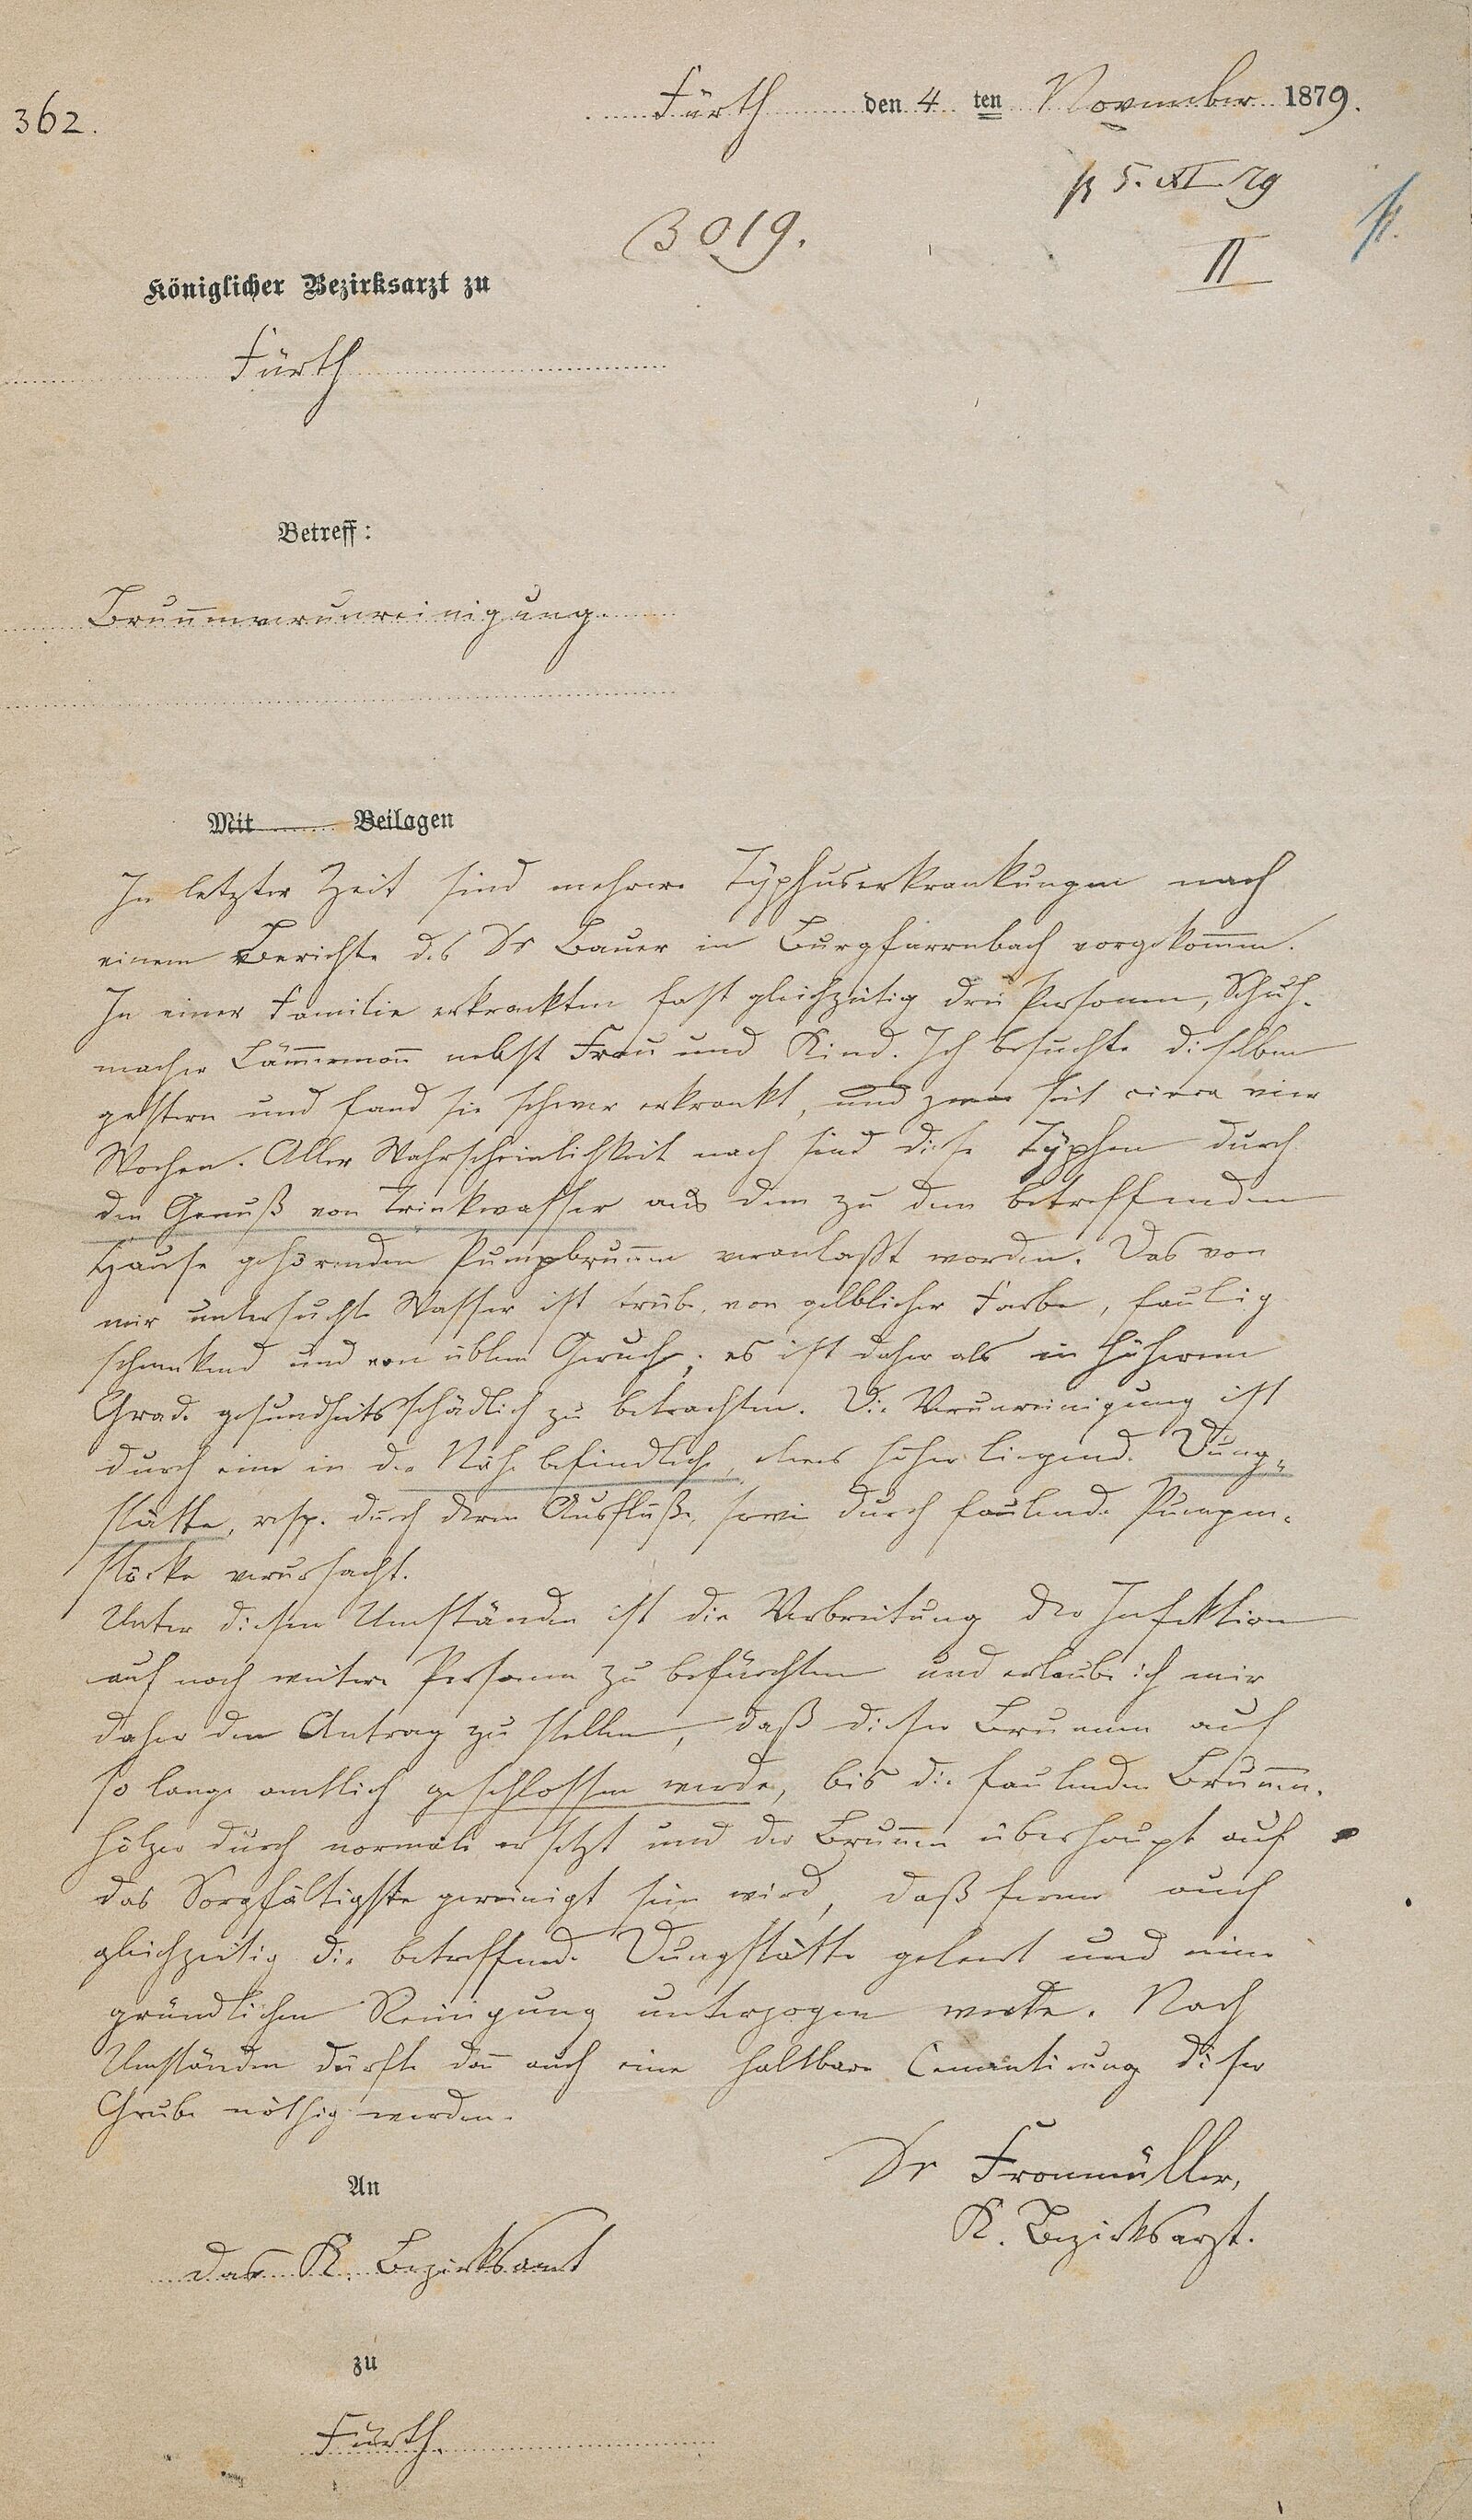 362.
Fürth den 4 ten November 1879.
5. XI 79
3019.
II
Königlicher Bezirksarzt zu
Fürth
Betreff:
Brunnenverunreinigung.
Mit Beilagen
In letzter Zeit sind mehrere Typhuserkrankungen nach
einem Berichte des Dr Bauer in Burgfarrnbach vorgekommen.
In einer Familie erkrankten fast gleichzeitig drei Personen, Schuh-
macher Lämmermann nebst Frau und Kind. Ich besuchte dieselben
gestern und fand sie schwer erkrankt, und zwar seit circa vier
Wochen. Aller Wahrscheinlichkeit nach sind diese Typhen durch
den Genuß von Trinkwasser aus dem zu dem betreffenden
Hause gehörenden Pumpbrunnen veranlaßt worden. Das von
mir untersuchte Wasser ist trübe, von gelblicher Farbe, faulig
schmeckend und von üblem Geruch; es ist daher als in höherem
Grade gesundheitsschädlich zu betrachten. Die Verunreinigung ist
durch eine in der Nähe befindliche, etwas höher liegende Dung-
stätte, resp. durch deren Ausflüße, sowie durch faulende Pumpen-
stöcke verursacht.
Unter diesen Umständen ist die Verbreitung der Infektion
auf noch weitere Personen zu befürchten und erlaube ich mir
daher den Antrag zu stellen, daß dieser Brunnen auf
so lange amtlich geschlossen werde, bis die faulenden Brunnen-
hölzer durch normale ersetzt und der Brunnen überhaupt auf
das Sorgfältigste gereinigt sein wird, daß ferner auch
gleichzeitig die betreffende Dungstätte geleert und einer
gründlichen Reinigung unterzogen werde. Nach
Umständen dürfte dann auch eine haltbare Cementirung dieser
Grube nöthig werden.
Dr Fronmüller,
K. Bezirksarzt.
An
das K. Bezirksamt
zu
Fürth.